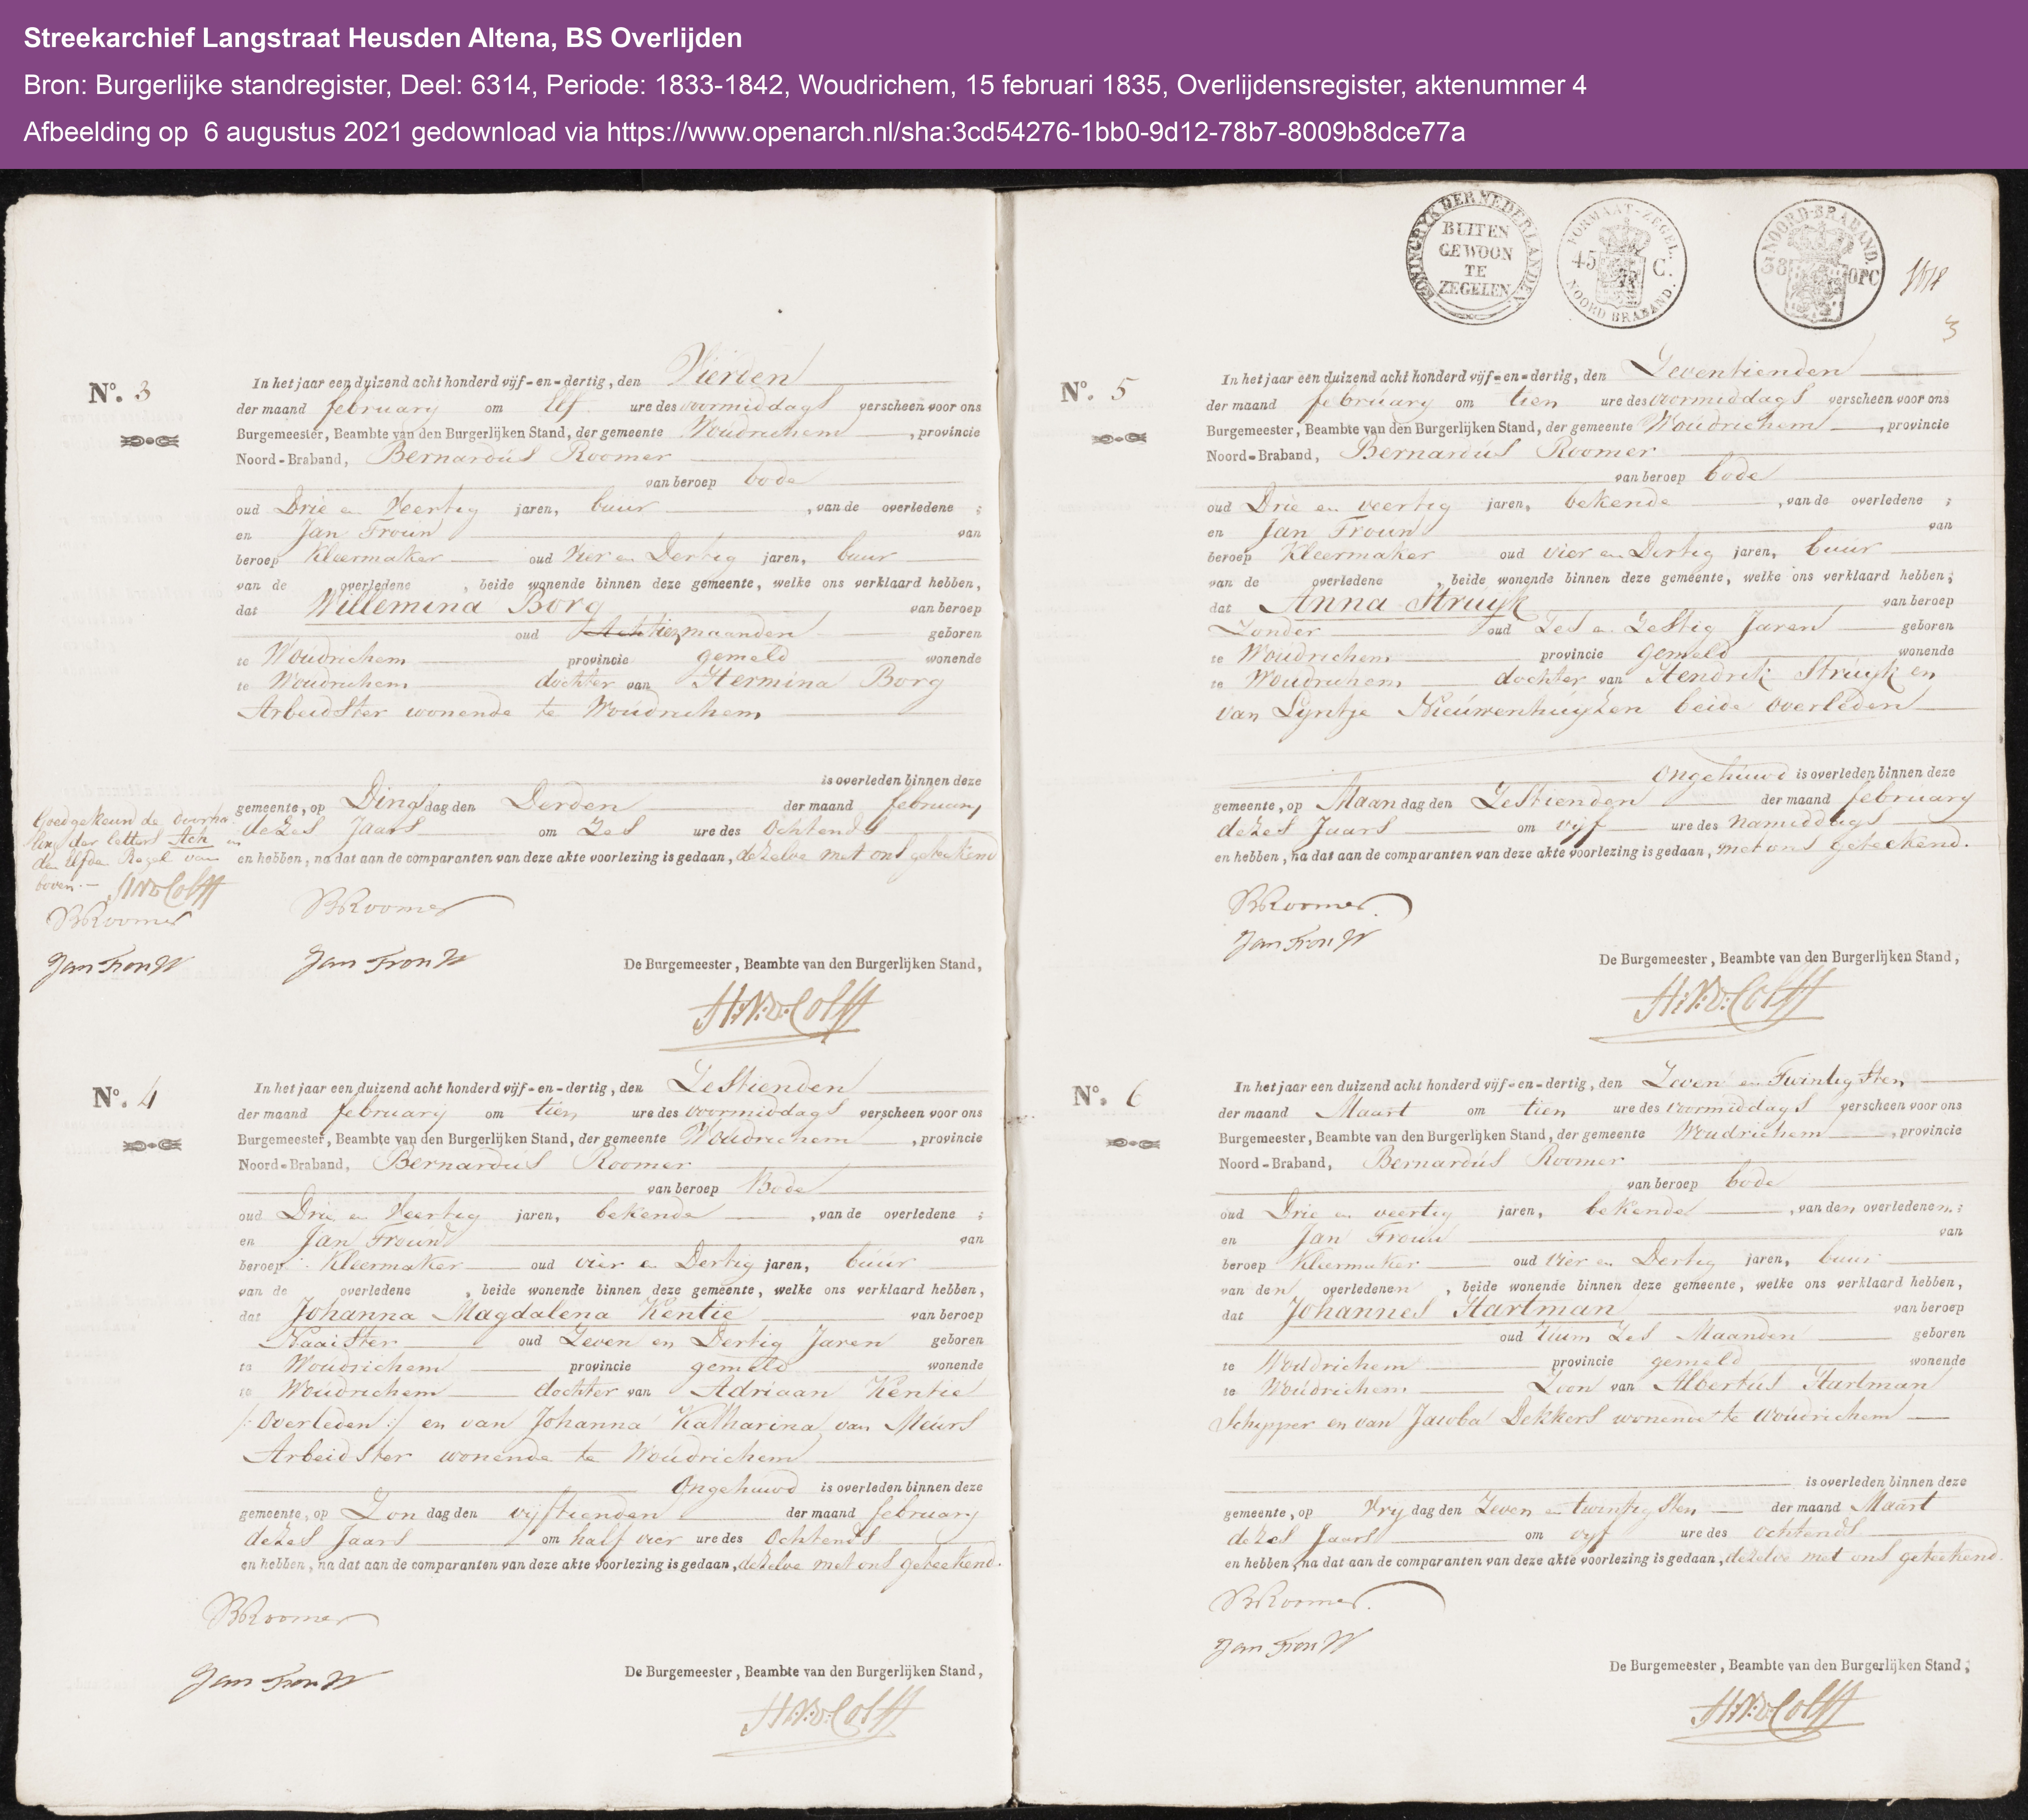 Streekarchief Langstraat Heusden Altena, BS Overlijden
Bron: Burgerlijke standregister, Deel: 6314, Periode: 1833-1842, Woudrichem, 15 februari 1835, Overlijdensregister, aktenummer 4
Afbeelding op 6 augustus 2021 gedownload via https://www.openarch.nl/sha:3cd54276-1bb0-9d12-78b7-8009b8dce77a
No. 3
In het jaar een duizend acht honderd vijf-en-dertig, den Vierden
der maand february om Elf ure des voormiddags verscheen voor ons
Burgemeester, Beambte van den Burgerlijken Stand, der gemeente Woúdrichem, provincie
Noord-Braband, Bernardús Roomer
van beroep bode
oud Drie en Veertig jaren, búúr, van de overledene ;
en Jan Froún van
beroep Kleermaker oud Vier en Dertig jaren, buur
van de overledene, beide wonende binnen deze gemeente, welke ons verklaard hebben,
dat Willemina Borg van beroep
oud maanden geboren
te Woúdrichem provincie gemeld wonende
te Woudrichem dochter van Hermina Borg
Arbeidster wonende te Woúdrichem
is overleden binnen deze
gemeente, op Dings dag den Derden der maand february
dezes Jaars om Zes ure des Ochtends
en hebben, na dat aan de comparanten van deze akte voorlezing is gedaan, dezelve met ons geteekend
Goedgekeurd de doorha
ling der letters Ach en
de Elfde Regel van
boven.— HNvColff
BRoomer
Jan Fronn
BRoomer
Jan Fronn
De Burgemeester, Beambte van den Burgerlijken Stand,
H:N:v:Colff
No. 4
In het jaar een duizend acht honderd vijf-en-dertig, den Zestienden
der maand february om tien ure des voormiddags verscheen voor ons
Burgemeester, Beambte van den Burgerlijken Stand, der gemeente Woúdrichem, provincie
Noord-Braband, Bernardús Roomer
van beroep Bode
oud Drie en Veertig jaren, bekende, van de overledene ;
en Jan Froun van
beroep Kleermaker oud vier en Dertig jaren, búúr
van de overledene, beide wonende binnen deze gemeente, welke ons verklaard hebben,
dat Johanna Magdalena Kentie van beroep
Naaister oud Zeven en Dertig Jaren geboren
te Woudrichem provincie gemeld wonende
te Woúdrichem dochter van Adriaan Kentie
/: Overleden :/ en van Johanna Katharina van Meúrs
Arbeidster wonende te Woúdrichem
Ongehúwd is overleden binnen deze
gemeente, op Zon dag den vijftienden der maand february
dezes Jaars om half vier ure des Ochtends
en hebben, na dat aan de comparanten van deze akte voorlezing is gedaan, dezelve met ons geteekend.
BRoomer
Jan Fronn
De Burgemeester, Beambte van den Burgerlijken Stand,
H:N:v:Colff
KONINGRYK DER NEDERLANDEN
BUITEN
GEWOON
TE
ZEGELEN
FORMAAT-ZEGEL.
45 C.
NOORD BRABAND.
NOORD-BRABAND.
38 OPC
3
No. 5
In het jaar een duizend acht honderd vijf-en-dertig, den Zeventienden
der maand february om tien ure des voormiddags verscheen voor ons
Burgemeester, Beambte van den Burgerlijken Stand, der gemeente Woúdrichem, provincie
Noord-Braband, Bernardús Roomer
van beroep bode
oud Drie en veertig jaren, bekende, van de overledene ;
en Jan Froun van
beroep Kleermaker oud vier en Dertig jaren, buur
van de overledene, beide wonende binnen deze gemeente, welke ons verklaard hebben,
dat Anna Struijk van beroep
Zonder oud Zes en Zestig Jaren geboren
te Woudrichem provincie gemeld wonende
te Woudrichem dochter van Hendrik Struijk en
van Lijntje Nieúwenhúijzen beide overleden
Ongehuwd is overleden binnen deze
gemeente, op Maan dag den Zestienden der maand february
dezes Jaars om vijf ure des Namiddags
en hebben, na dat aan de comparanten van deze akte voorlezing is gedaan, met ons geteekend.
BRoomer
Jan Fronn
De Burgemeester, Beambte van den Burgerlijken Stand,
H:N:v:Colff
No. 6
In het jaar een duizend acht honderd vijf-en-dertig, den Zeven en Twintigsten
der maand Maart om tien ure des voormiddags verscheen voor ons
Burgemeester, Beambte van den Burgerlijken Stand, der gemeente Woudrichem, provincie
Noord-Braband, Bernardús Roomer
van beroep bode
oud Drie en veertig jaren, bekende, van den overledenen ;
en Jan Froun van
beroep Kleermaker oud Vier en Dertig jaren, buur
van den overledenen, beide wonende binnen deze gemeente, welke ons verklaard hebben,
dat Johannes Hartman van beroep
oud ruim Zes Maanden geboren
te Woúdrichem provincie gemeld wonende
te Woúdrichem Zoon van Albertús Hartman
Schipper en van Jacoba Dekkers wonende te Woúdrichem
is overleden binnen deze
gemeente, op Vry dag den Zeven en twintigsten der maand Maart
dezes Jaars om vyf ure des ochtends
en hebben, na dat aan de comparanten van deze akte voorlezing is gedaan, dezelve met ons geteekend.
BRoomer.
Jan Fronn
De Burgemeester, Beambte van den Burgerlijken Stand,
H:N:v:Colff